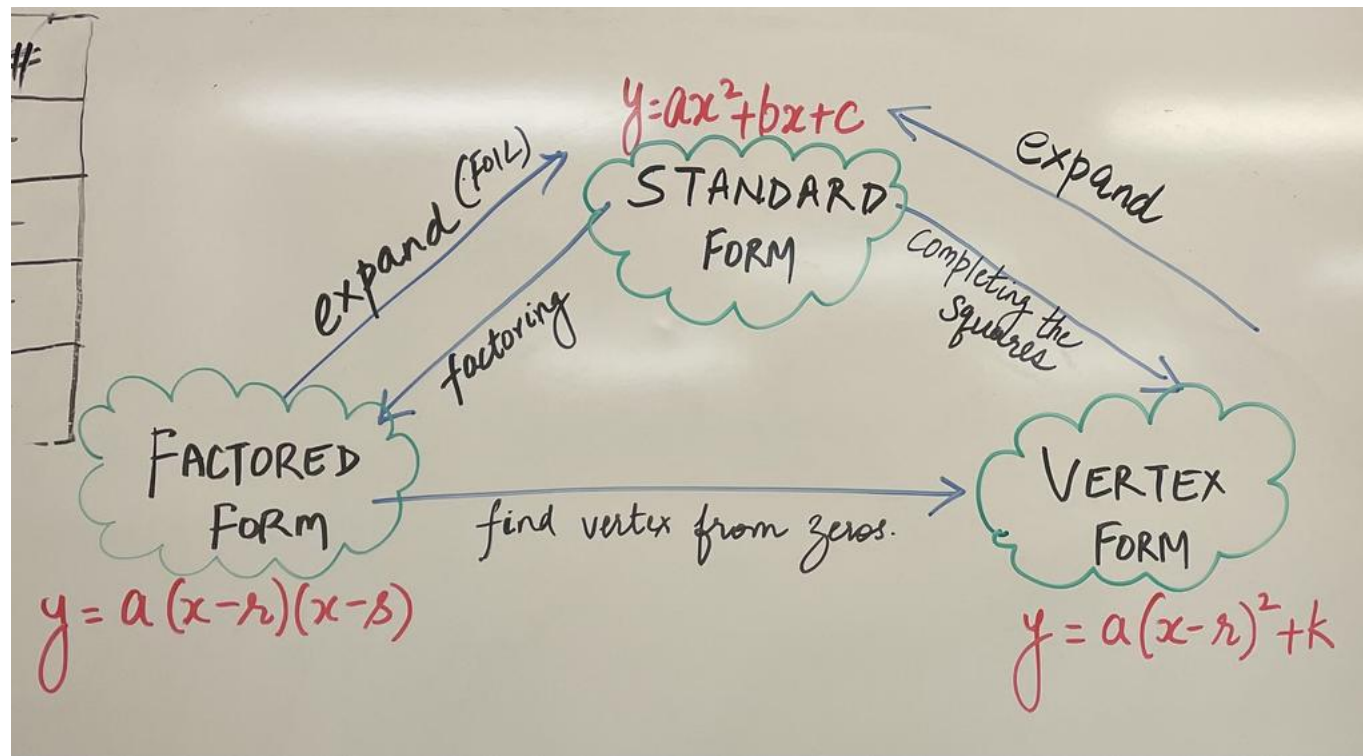 #
y=ax²+bx+c
STANDARD
FORM
expand (FOIL)
factoring
expand
completing the
squares
FACTORED
FORM
find vertex from zeros.
VERTEX
FORM
y = a(x-r)(x-s)
y = a(x-r)²+k